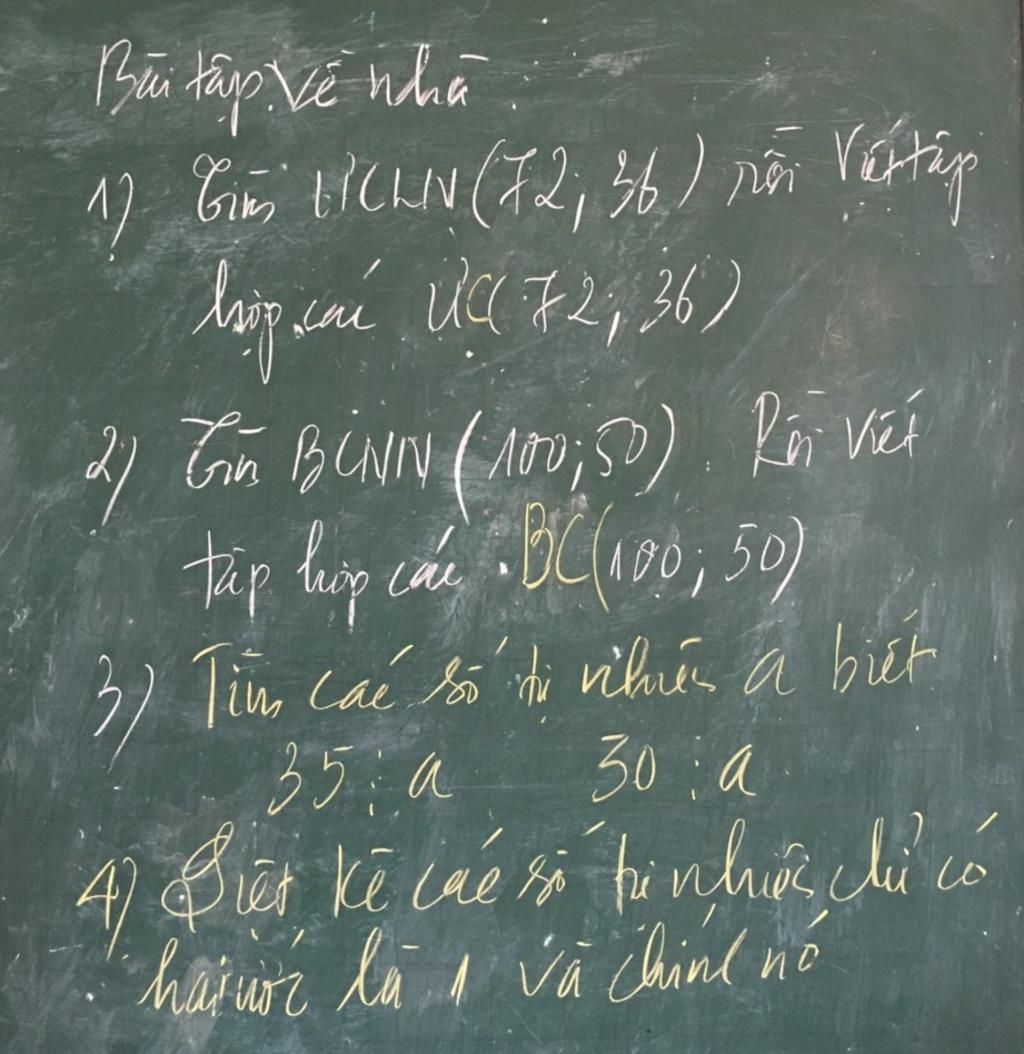 Bài tập về nhà.
1) Tìm ƯCLN(72; 36) rồi viết tập
hợp các ƯC(72; 36)
2) Tìm BCNN (100; 50). Rồi viết
tập hợp các BC(100; 50)
3) Tìm các số tự nhiên a biết
35 ⋮ a 30 ⋮ a
4) Liệt kê các số tự nhiên chỉ có
hai ước là 1 và chính nó